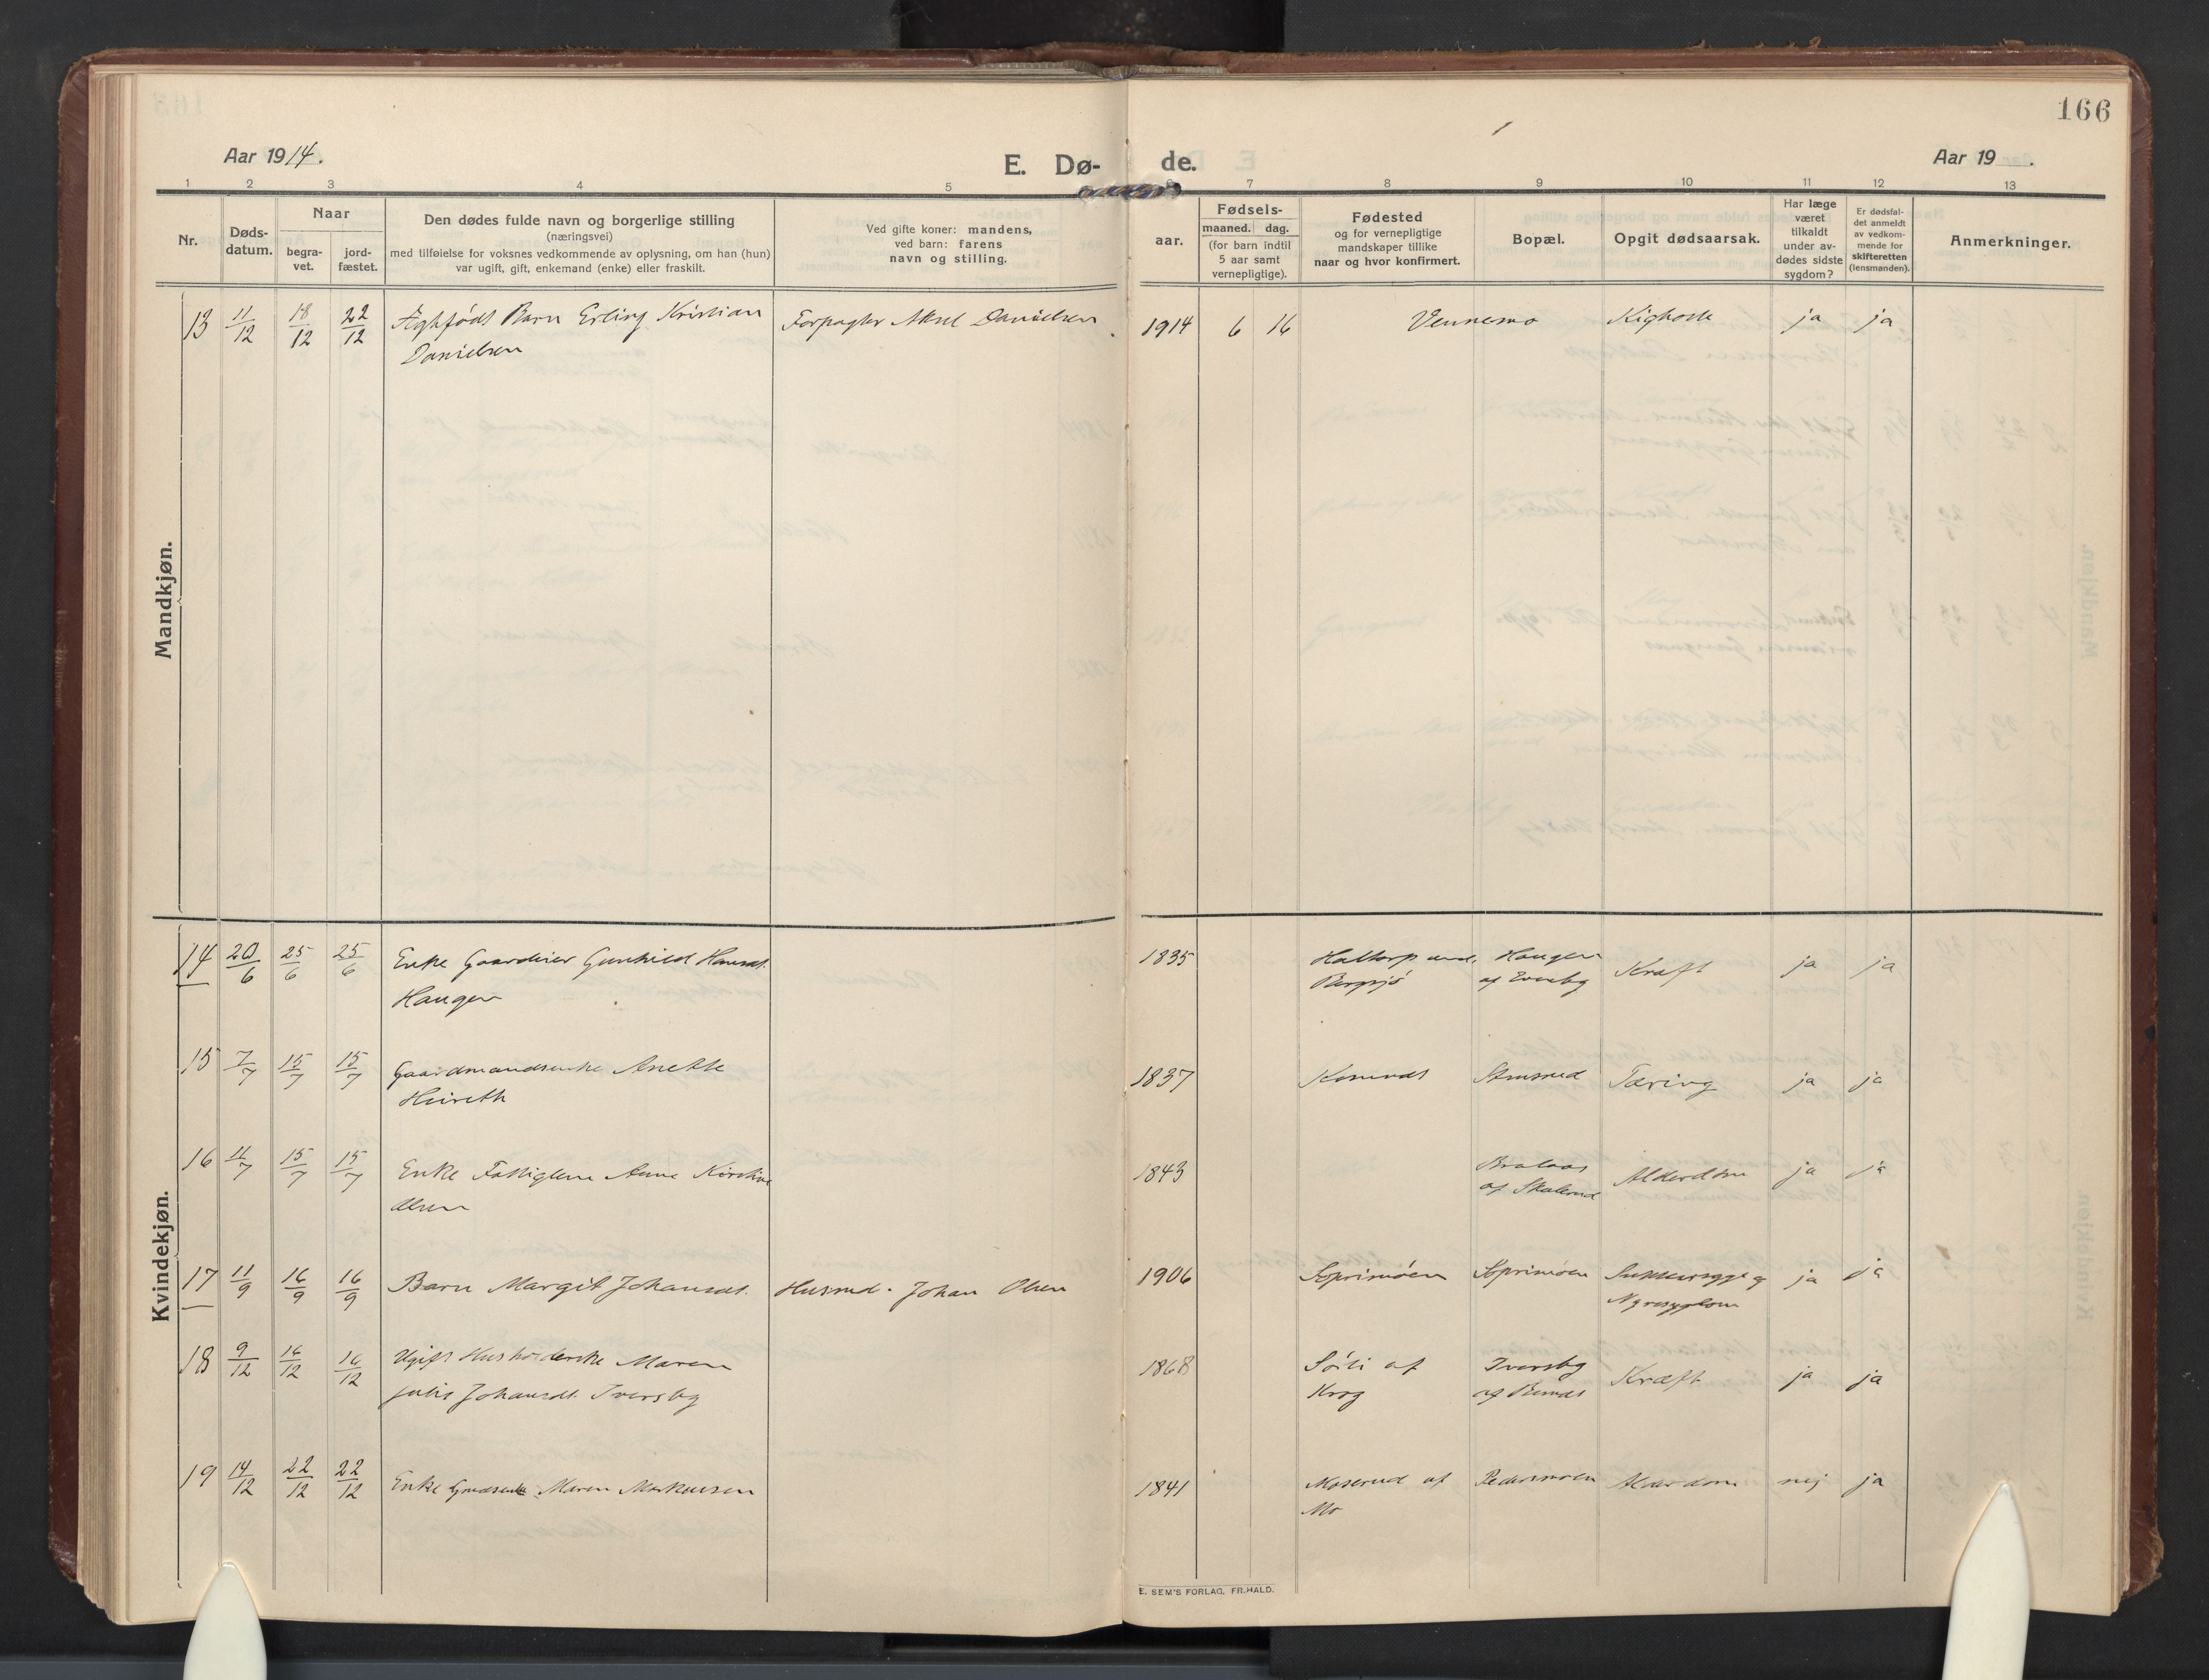 166
Aar 1914.
E. Dø- de.
Aar 19 .
1 2 3 4 5 6 7 8 9 10 11 12 13
Nr.
Døds-
datum.
Naar
begra-
vet.
jord-
fæstet.
Den dødes fulde navn og borgerlige stilling
(næringsvei)
med tilføielse for voksnes vedkommende av oplysning, om han (hun)
var ugift, gift, enkemand (enke) eller fraskilt.
Ved gifte koner: mandens,
ved barn: farens
navn og stilling.
Fødsels-
aar.
maaned. dag.
(for barn indtil
5 aar samt
vernepligtige).
Fødested
og for vernepligtige
mandskaper tillike
naar og hvor konfirmert.
Bopæl.
Opgit dødsaarsak.
Har læge
været
tilkaldt
under av-
dødes sidste
sygdom?
Er dødsfal-
det anmeldt
av vedkom-
mende for
skifteretten
(lensmanden).
Anmerkninger.
Mandkjøn.
13 11/12 18/12 22/12 Ægtefødt Barn Erling Kristian Forpagter Aksel Danielsen 1914 6 16 Vennemo Kighoste ja ja
Danielsen
Kvindekjøn.
14 20/6 25/6 25/6 Enke Gaardeier Gunhild Hansdt. 1835 Haugen Kræft ja ja
Haugen
15 7/7 15/7 15/7 Gaardmandsenke Anette 1837 Tæring ja ja
16 11/7 15/7 15/7 Enke Fattiglem Anne Kirstine 1843 Alderdom ja ja
Olsen af
17 11/9 16/9 16/9 Barn Margit Johansdt. Husmd. Johan Olsen 1906 Sukkersyge og ja ja
Nyresygdom
18 9/12 16/12 16/12 Ugift Husholderske Maren 1868 af Iversby Kræft ja ja
Julie Johansdt. Iversby Krog af
19 14/12 22/12 22/12 Enke Maren Markussen 1841 Moserud af Pedersmoen Alderdom nej ja
Mo
E. SEM'S FORLAG, FR.HALD.